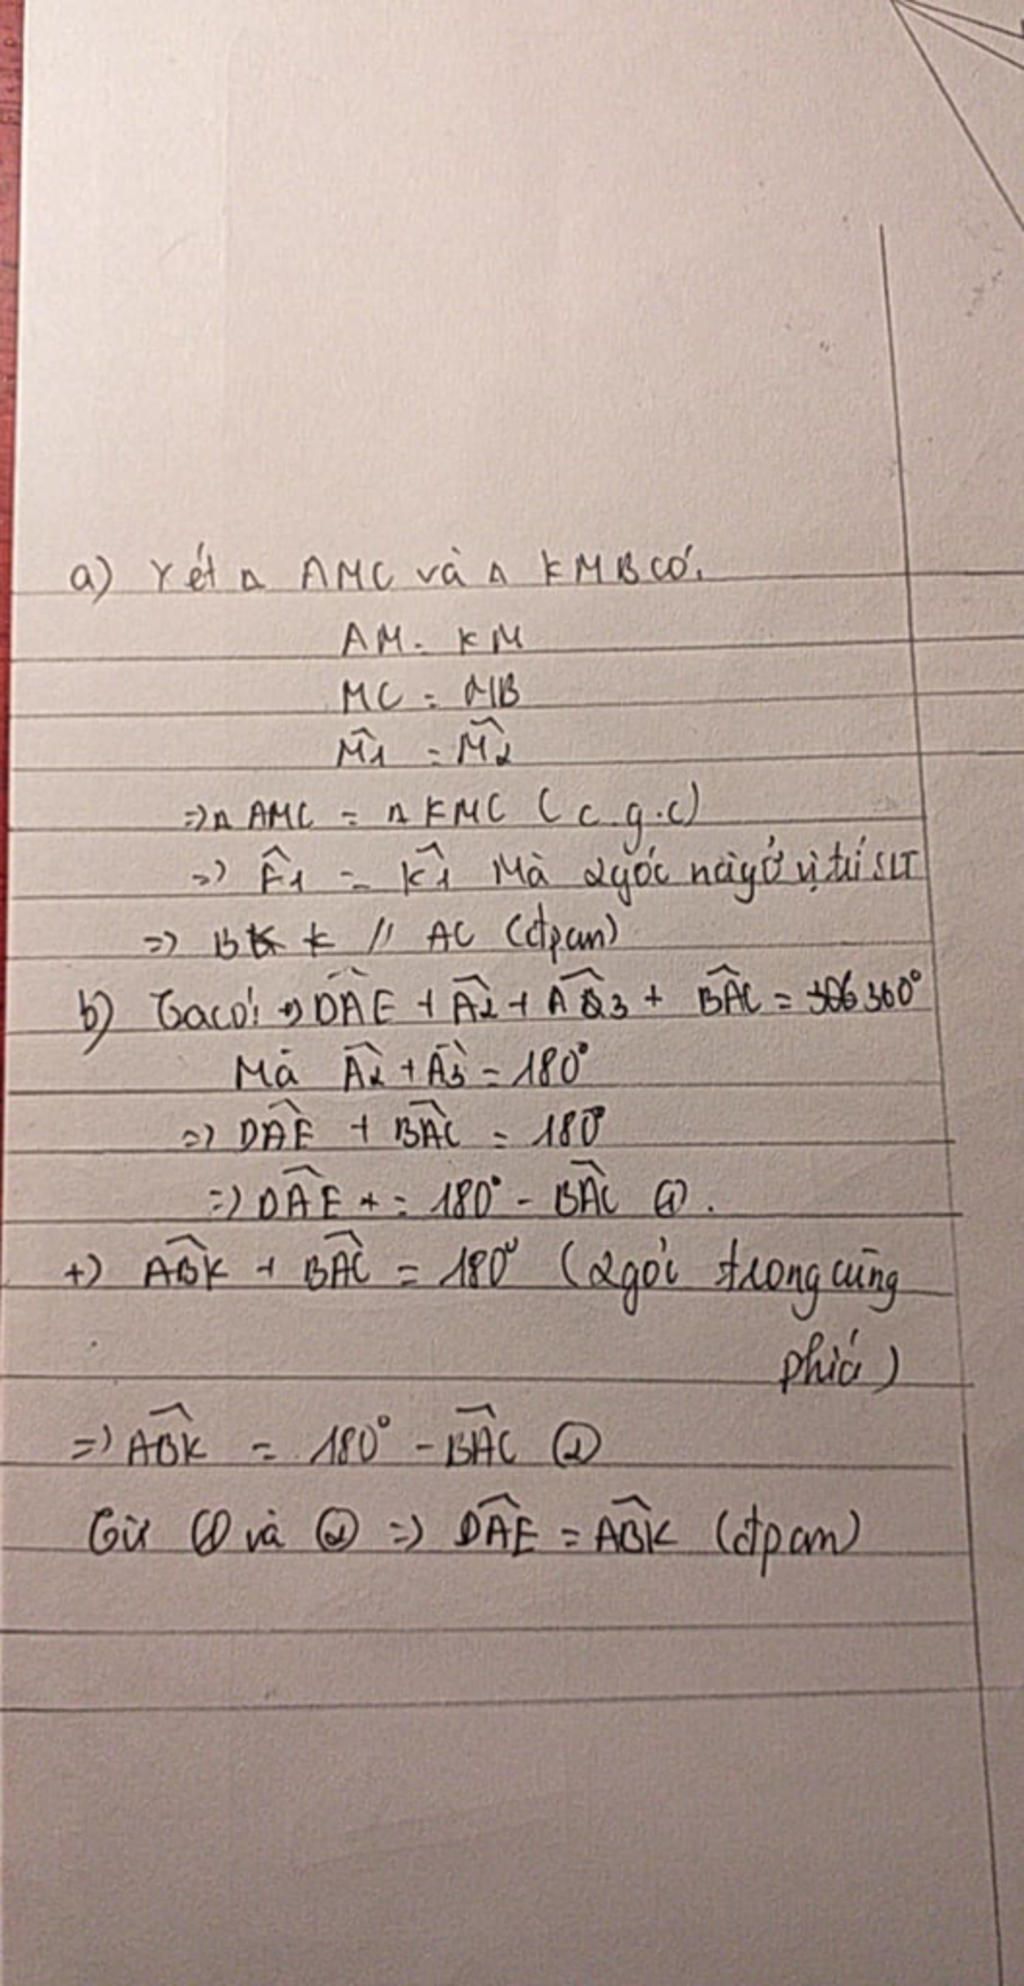 a) Xét Δ AMC và Δ KMB có.
AM = KM
MC = MB
M̂1 = M̂2
=> Δ AMC = Δ KMC (c.g.c)
=> Ê1 = K̂1 Mà 2 góc này ở vị trí SLT
=> BK // AC (đpcm)
b) Ta có: DÂE + Â2 + Â3 + BÂC = 360°
Mà Â2 + Â3 = 180°
=> DÂE + BÂC = 180°
=> DÂE = 180° - BÂC ①.
+) AB̂K + BÂC = 180° (2 góc trong cùng
phía)
=> AB̂K = 180° - BÂC ②
Từ ① và ② => DÂE = AB̂K (đpcm)